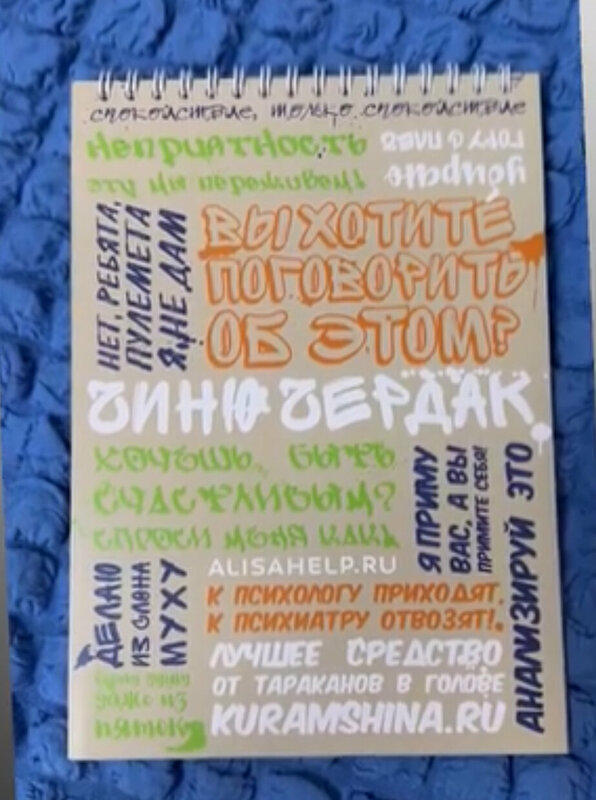 спокойствие, только спокойствие
Неприятность
эту мы переживем!
убираю
гору с плеч
НЕТ, РЕБЯТА,
ПУЛЕМЕТА
Я НЕ ДАМ
ВЫ ХОТИТЕ
ПОГОВОРИТЬ
ОБ ЭТОМ?
ЧИНЮ ЧЕРДАК.
ХОЧЕШЬ БЫТЬ
СЧАСТЛИВЫМ?
СПРОСИ МЕНЯ КАК
Я ПРИМУ
ВАС, А ВЫ
ПРИМИТЕ СЕБЯ!
АНАЛИЗИРУЙ ЭТО
ALISAHELP.RU
ДЕЛАЮ
ИЗ СЛОНА
МУХУ
К ПСИХОЛОГУ ПРИХОДЯТ,
К ПСИХИАТРУ ОТВОЗЯТ!
даже из
пяток
ЛУЧШЕЕ СРЕДСТВО
ОТ ТАРАКАНОВ В ГОЛОВЕ
KURAMSHINA.RU